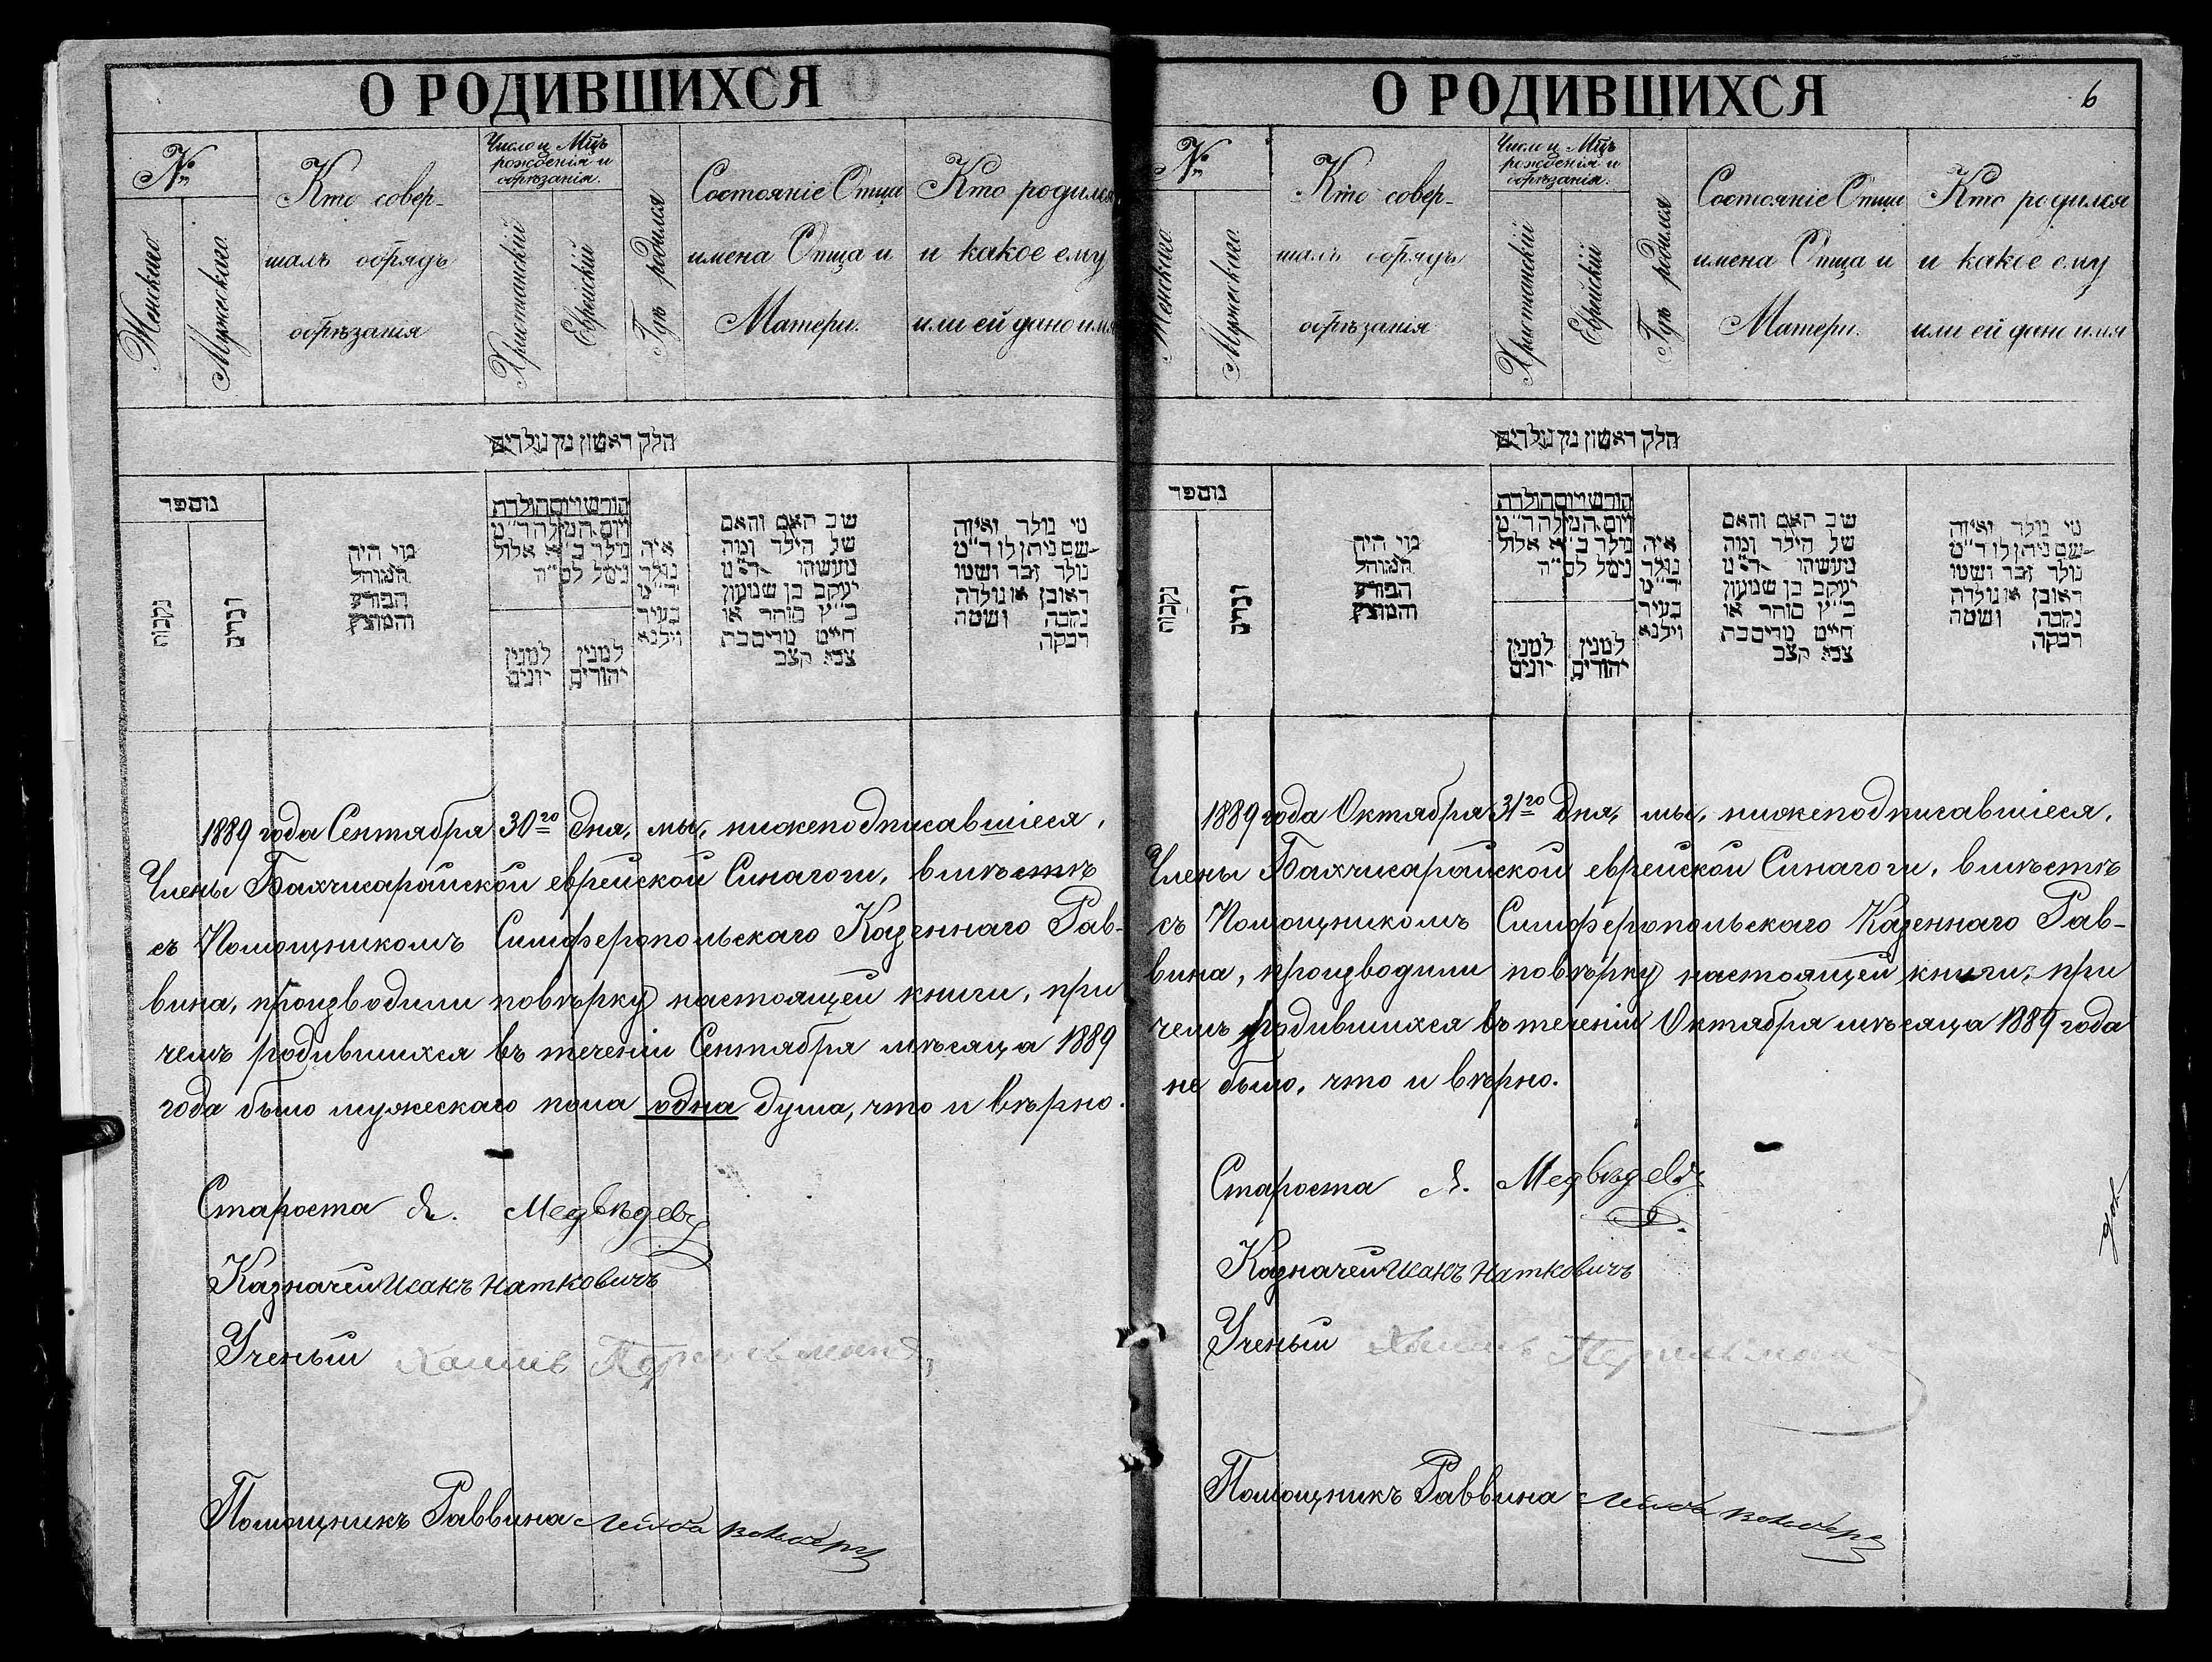 О РОДИВШИХСЯ
№
Женскаго
Мужескаго
Кто совер-
шалъ обрядъ
обрѣзанія
Число и Мцъ
рожденія и
обрѣзанія.
Христіанскій
Еврейскій
Гдѣ родился
Состояніе Отца
имена Отца и
Матери.
Кто родился
и какое ему
или ей дано имя
חלק ראשון מן נולדים
מספר
נקבות
זכרים
מי היה
המוהל
הפורע
והמוצץ
חודש ויום הולדת
ויום המילה ד״מ
נולד ב׳׳א אלול
נימל לס״ה
למנין
יונים
למנין
יהודים
איה
נולד
ד״מ
בעיר
ווילנא
שב האם והאם
של הילד ומה
מעשהו ד״מ
יעקב בן שמעון
כ״ץ סוחר או
חייט מריםבת
צבא קצב
מי נולד ואיזה
שם ניתן לו ד״מ
נולד זכר ושמו
ראובן או נולדה
נקבה ושמה
רבקה
1889 года Сентября 30го дня, мы, нижеподписавшіеся,
Члены Бахчисарайской еврейской Синагоги, вмѣстѣ
съ Помощникомъ Симферопольскаго Казеннаго Рав-
вина, производили повѣрку настоящей книги, при
чемъ родившихся въ теченіи Сентября мѣсяца 1889
года было мужескаго пола одна душа, что и вѣрно.
Староста Я. Медвѣдевъ
Казначей Исакъ Натковичъ
Ученый Перельманъ
Помощникъ Раввина Лейба
О РОДИВШИХСЯ
6
№
Женскаго
Мужескаго
Кто совер-
шалъ обрядъ
обрѣзанія
Число и Мцъ
рожденія и
обрѣзанія.
Христіанскій
Еврейскій
Гдѣ родился
Состояніе Отца
имена Отца и
Матери.
Кто родился
и какое ему
или ей дано имя
חלק ראשון מן נולדים
מספר
נקבות
זכרים
מי היה
המוהל
הפורע
והמוצץ
חודש ויום הולדת
ויום המילה ד״מ
נולד ב׳׳א אלול
נימל לס״ה
למנין
יונים
למנין
יהודים
איה
נולד
ד״מ
בעיר
ווילנא
שב האם והאם
של הילד ומה
מעשהו ד״מ
יעקב בן שמעון
כ״ץ סוחר או
חייט מריםבת
צבא קצב
מי נולד ואיזה
שם ניתן לו ד״מ
נולד זכר ושמו
ראובן או נולדה
נקבה ושמה
רבקה
1889 года Октября 31го Дня, мы, нижеподписавшіеся,
Члены Бахчисарайской еврейской Синагоги, вмѣстѣ
съ Помощникомъ Симферопольскаго Казеннаго Рав-
вина, производили повѣрку настоящей книги, при
чемъ родившихся въ теченіи Октября мѣсяца 1889 года
не было, что и вѣрно.
Староста Я. Медвѣдевъ
Казначей Исакъ Натковичъ
Ученый Перельманъ
Помощникъ Раввина Лейба